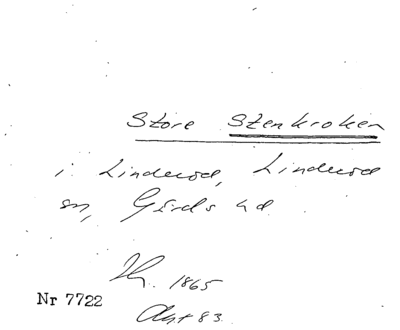 Store Stenkroken
i Linderod, Linderod
sn, Gärds hd
1865
Nr 7722
Akt 83.